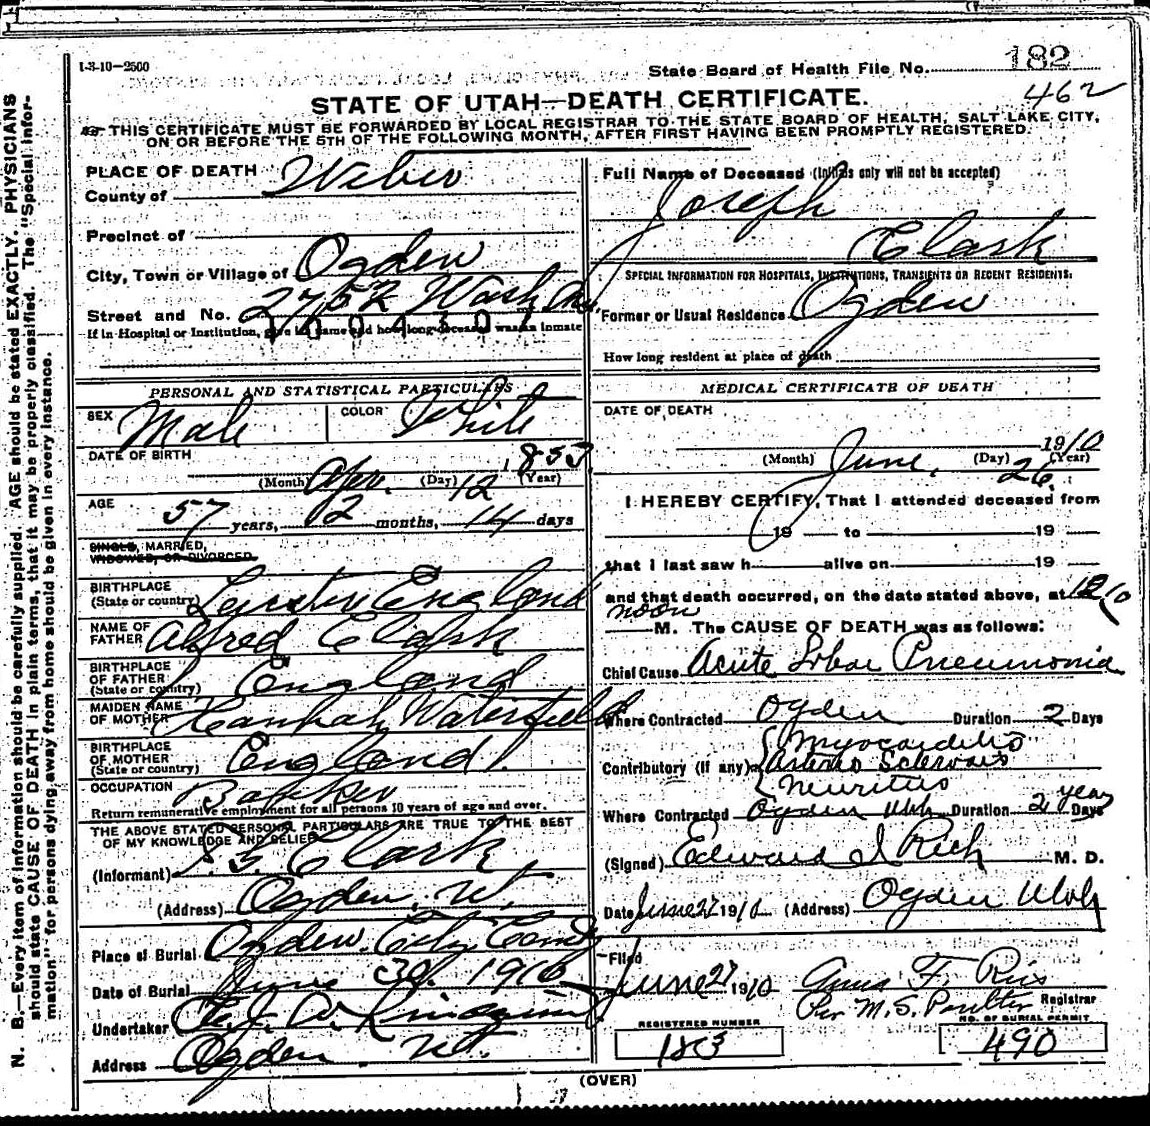 1-3-10—2500
State Board of Health File No. 182
462
STATE OF UTAH—DEATH CERTIFICATE.
THIS CERTIFICATE MUST BE FORWARDED BY LOCAL REGISTRAR TO THE STATE BOARD OF HEALTH, SALT LAKE CITY,
ON OR BEFORE THE 5TH OF THE FOLLOWING MONTH, AFTER FIRST HAVING BEEN PROMPTLY REGISTERED.
N. B.—Every item of information should be carefully supplied. AGE should be stated EXACTLY. PHYSICIANS
should state CAUSE OF DEATH in plain terms, that it may be properly classified. The "Special Infor-
mation" for persons dying away from home should be given in every instance.
PLACE OF DEATH
County of Weber
Precinct of
City, Town or Village of Ogden
Street and No. 2752 Wash Ave.
If in Hospital or Institution, give its name and how long deceased was an inmate
PERSONAL AND STATISTICAL PARTICULARS
SEX Male COLOR White
DATE OF BIRTH
Apr. 12 1853
(Month) (Day) (Year)
AGE
57 years, 2 months, 14 days
SINGLE, MARRIED,
WIDOWED, OR DIVORCED
BIRTHPLACE
(State or country) England
NAME OF
FATHER Alfred Clark
BIRTHPLACE
OF FATHER
(State or country) England
MAIDEN NAME
OF MOTHER Hannah Waterfield
BIRTHPLACE
OF MOTHER
(State or country) England
OCCUPATION
Return remunerative employment for all persons 10 years of age and over.
THE ABOVE STATED PERSONAL PARTICULARS ARE TRUE TO THE BEST
OF MY KNOWLEDGE AND BELIEF
(Informant) Clark
(Address) Ogden, Ut.
Place of Burial Ogden City Cemty
Date of Burial June 30, 1910
Undertaker
Address Ogden Ut.
Full Name of Deceased (Initials only will not be accepted)
Joseph
Clark
SPECIAL INFORMATION FOR HOSPITALS, INSTITUTIONS, TRANSIENTS OR RECENT RESIDENTS.
Former or Usual Residence Ogden
How long resident at place of death
MEDICAL CERTIFICATE OF DEATH
DATE OF DEATH
June 26. 1910
(Month) (Day) (Year)
I HEREBY CERTIFY, That I attended deceased from
19 to 19
that I last saw h alive on 19
and that death occurred, on the date stated above, at
noon
M. The CAUSE OF DEATH was as follows:
Chief Cause Acute Lobar Pneumonia
Where Contracted Ogden Duration 2 Days
Myocarditis
Contributory (if any) Sclerosis
Neuritis
Where Contracted Ogden Utah Duration 2 years Days
(Signed) Edward I Rich M. D.
Date June 27 1910 (Address) Ogden Utah
Filed
June 27 1910
Per M. S. Poulter Registrar
REGISTERED NUMBER
183
NO. OF BURIAL PERMIT
490
(OVER)